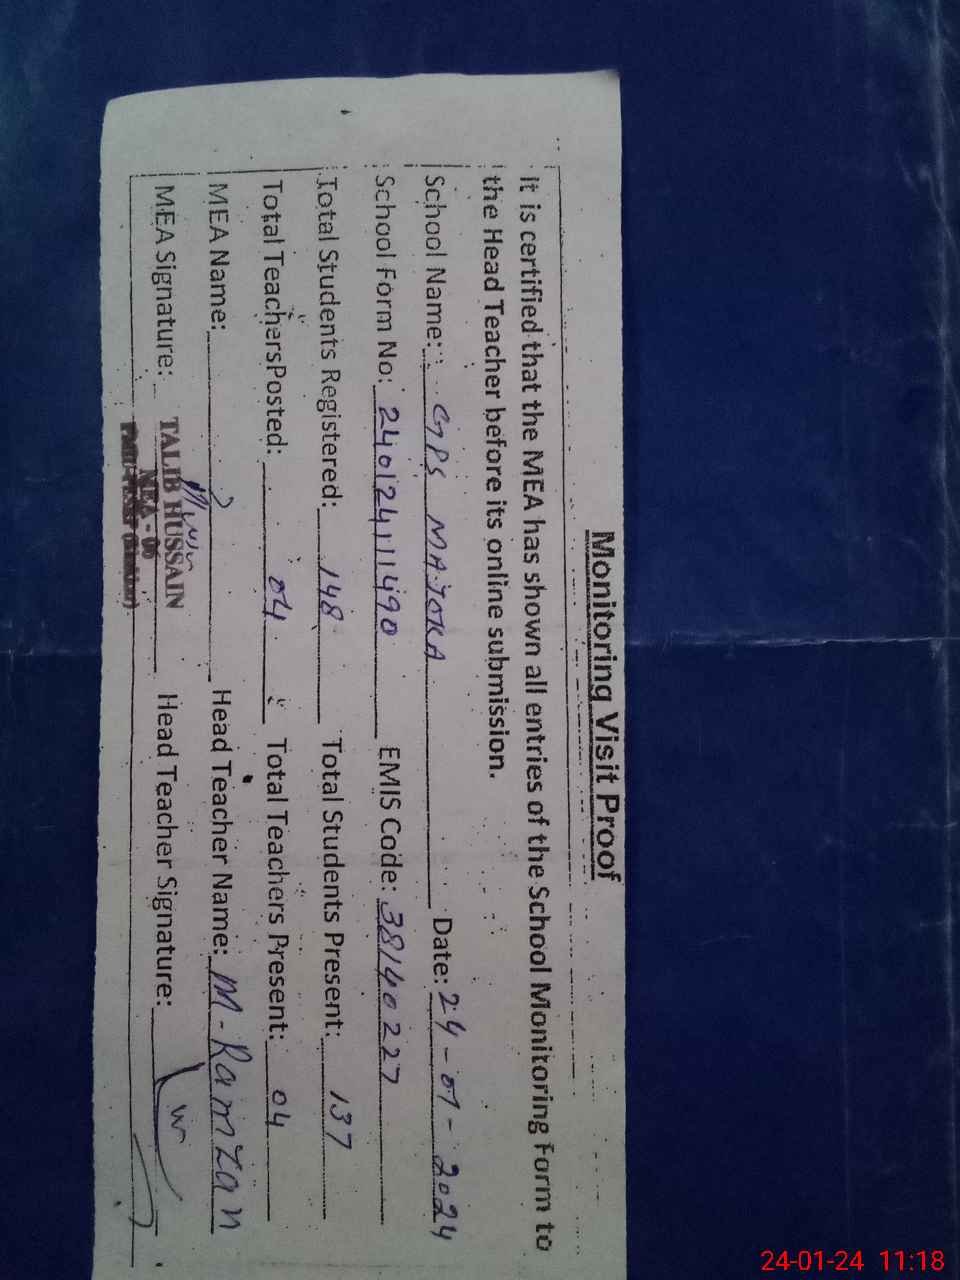 Monitoring Visit Proof
It is certified that the MEA has shown all entries of the School Monitoring Form to
the Head Teacher before its online submission.
School Name: GPS MAJOKA Date: 24-01-2024
School Form No: 240124111490 EMIS Code: 38140227
Total Students Registered: 148 Total Students Present: 137
Total TeachersPosted: 04 Total Teachers Present: 04
MEA Name: Head Teacher Name: M-Ramzan
MEA Signature: Head Teacher Signature:
TALIB HUSSAIN
24-01-24 11:18